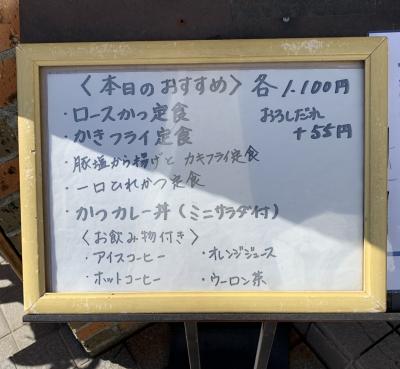 〈本日のおすすめ〉各1.100円
・ロースかつ定食 おろしだれ
・かきフライ定食 +55円
・豚塩から揚げと カキフライ定食
・一口ひれかつ定食
・かつカレー丼(ミニサラダ付)
〈お飲み物付き〉
・アイスコーヒー ・オレンジジュース
・ホットコーヒー ・ウーロン茶